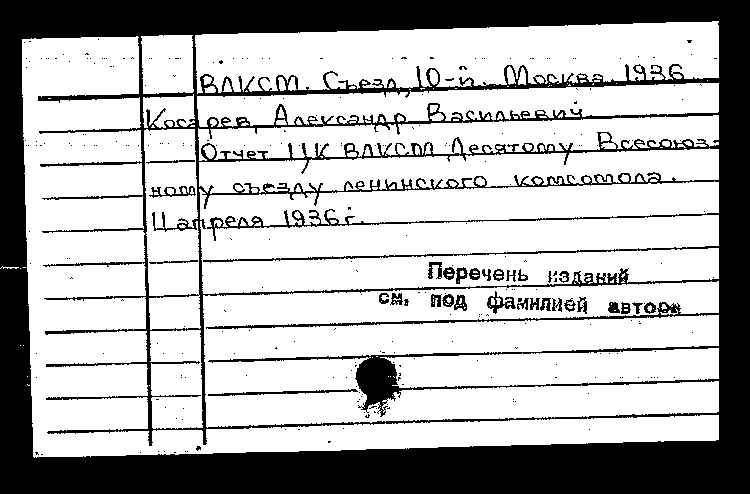 ВЛКСМ. Съезд, 10-й. Москва. 1936
Косарев, Александр Васильевич.
Отчет ЦК ВЛКСМ Десятому Всесоюз-
ному съезду ленинского комсомола.
11 апреля 1936 г.
Перечень изданий
см. под фамилией автора